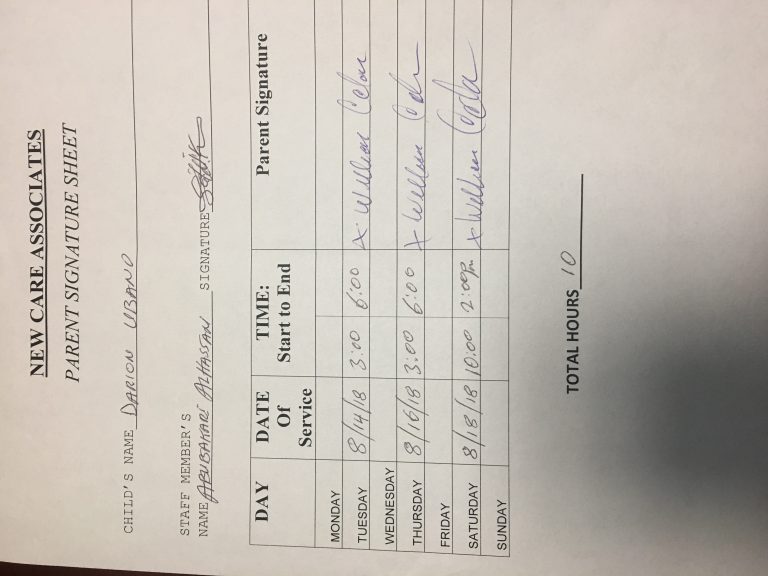 NEW CARE ASSOCIATES
PARENT SIGNATURE SHEET
CHILD'S NAME DARION UBANO
STAFF MEMBER'S
NAME ABUBAKARI ALHASSAN SIGNATURE
DAY DATE Of Service TIME: Start to End Parent Signature
MONDAY
TUESDAY 8/14/18 3:00 6:00 X William
WEDNESDAY
THURSDAY 8/16/18 3:00 6:00 X William
FRIDAY
SATURDAY 8/18/18 10:00 2:00pm X William
SUNDAY
TOTAL HOURS 10